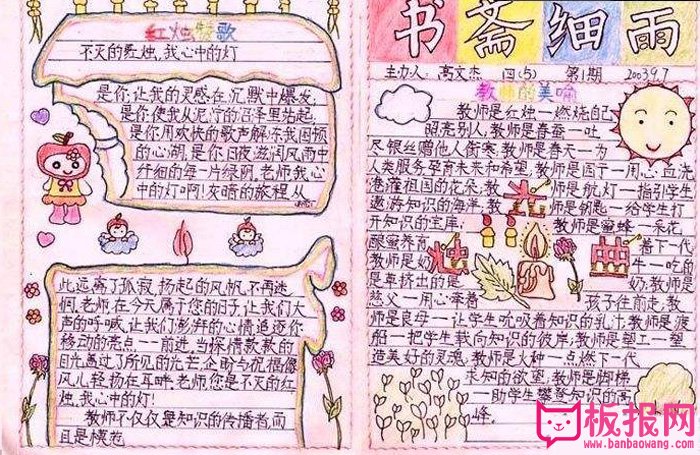 红烛赞歌
不灭的红烛,我心中的灯
是你,让我的灵感在沉默中爆发;
是你,使我从泥泞的沼泽里站起,
是你,用欢快的歌声解冻我困顿
的心湖,是你,日夜滋润风雨中
纤细的每一片绿荫,老师,我心
中的灯啊!灰暗的旅程,从
此远离了孤寂,扬起的风帆,不再迷
惘。老师,在今天属于您的日子,让我们大
声的呼喊,让我们澎湃的心情追逐你
移动的亮点——前进,当深情款款的
目光盖过了所见的光芒,企盼与祝福像
风儿轻扬在耳畔,老师,您是不灭的红
烛,我心中的灯!
教师不仅仅是知识的传播者,而
且是模范
书斋细雨
主办人:高文杰 四(5) 第1期 2003.9.7
教师的美喻
教师是红烛一燃烧自己,
照亮别人,教师是春蚕一吐
尽银丝赠他人御寒,教师是春天一为
人类服务孕育未来和希望,教师是园丁一用心血浇
灌灌祖国的花朵,教师是航灯一指引学生
遨游知识的海洋,教师是钥匙一给学生打
开知识的宝库,教师是蜜蜂一采花
酿蜜养育着下代,
教师是奶牛一吃的
是草挤出的是奶,教师是
慈父一用心牵着孩子往前走,教
师是良母一让学生吮吸着知识的乳汁,教师是渡
船一把学生载向知识的彼岸;教师是塑工一塑
造美好的灵魂,教师是火种一点燃下一代
求知的欲望,教师是脚梯
一助学生攀登知识的高
峰。
烛
典
板报网
www.banbaowang.com